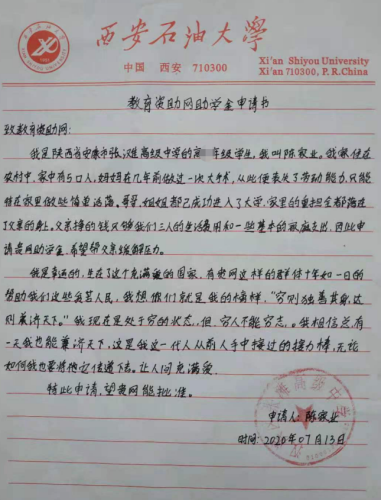 西安石油大学
中国 西安 710300
Xi'an Shiyou University
Xi'an 710300, P.R.China
教育资助网助学金申请书
致教育资助网：
我是陕西省安康市张滩高级中学的高 年级学生，我叫陈敬业。我家住在
农村中，家中有5口人，妈妈在几年前做过一次大手术，从此便丧失了劳动能力，只能
待在家里做些简单活落。哥哥、姐姐都已成功进入了大学，家里的重担全都施压
了父亲的身上。父亲挣的钱只够我们三人的生活费用和一些基本的家庭支出，因此申
请贵网助学金，希望帮父亲缓解压力。
我是幸运的，生在了这个充满爱的国家，有贵网这样的群体十年如一日的
帮助我们这些贫苦人民，我想，他们就是我的榜样，"穷则独善其身，达
则兼济天下。"我现在是处于穷的状态，但，穷人不能穷志。我相信总有
一天我也能兼济天下，这是我这一代人从前人手中接过的接力棒，无论
如何我也要将他定传递下去。让人间充满爱。
特此申请，望贵网能批准。
申请人：陈敬业
时间：2020年07月13日